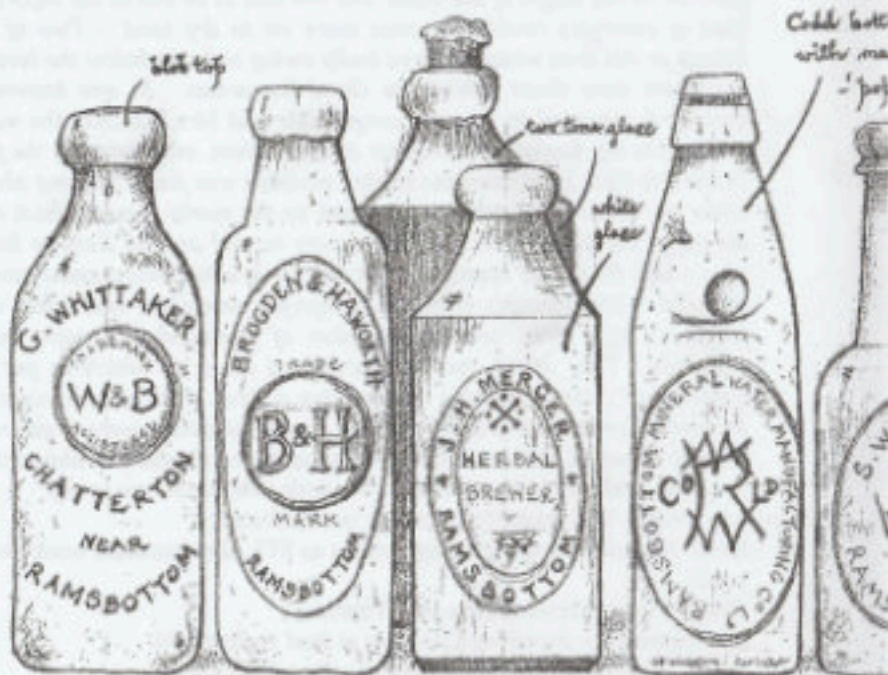 blob top
two tone glaze
white glaze
with
'pop
G. WHITTAKER
TRADE MARK
W&B
REGISTERED
CHATTERTON
NEAR
RAMSBOTTOM
BROGDEN & HAWORTH
TRADE
B&H
MARK
RAMSBOTTOM
J. H. MERCER
HERBAL
BREWER
RAMSBOTTOM
RAMSBOTTOM MINERAL WATER MANUFACTURING Co Ld
Co LD
S.